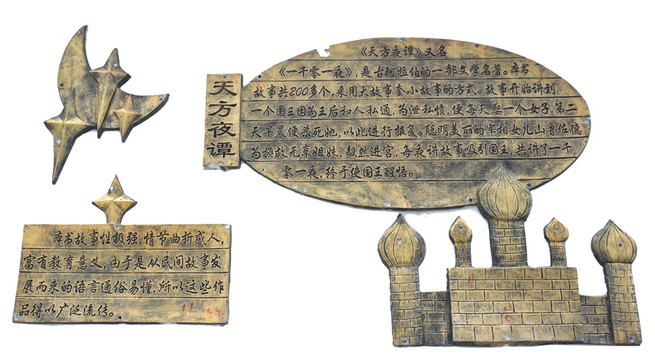 天方夜谭
《天方夜谭》又名
《一千零一夜》,是古阿拉伯的一部文学名著。本书
故事共200多个,采用大故事套小故事的方式。故事开始讲到
一个国王因为王后和人私通,为泄私愤,便每天娶一个女子,第二
天早晨便杀死她,以此进行报复。聪明美丽的宰相女儿山鲁佐德
为拯救无辜姐妹,毅然进宫,每夜讲故事吸引国王,共讲了一千
零一夜,终于使国王醒悟。
本书故事性极强,情节曲折感人,
富有教育意义,由于是从民间故事发
展而来的语言通俗易懂,所以这些作
品得以广泛流传。